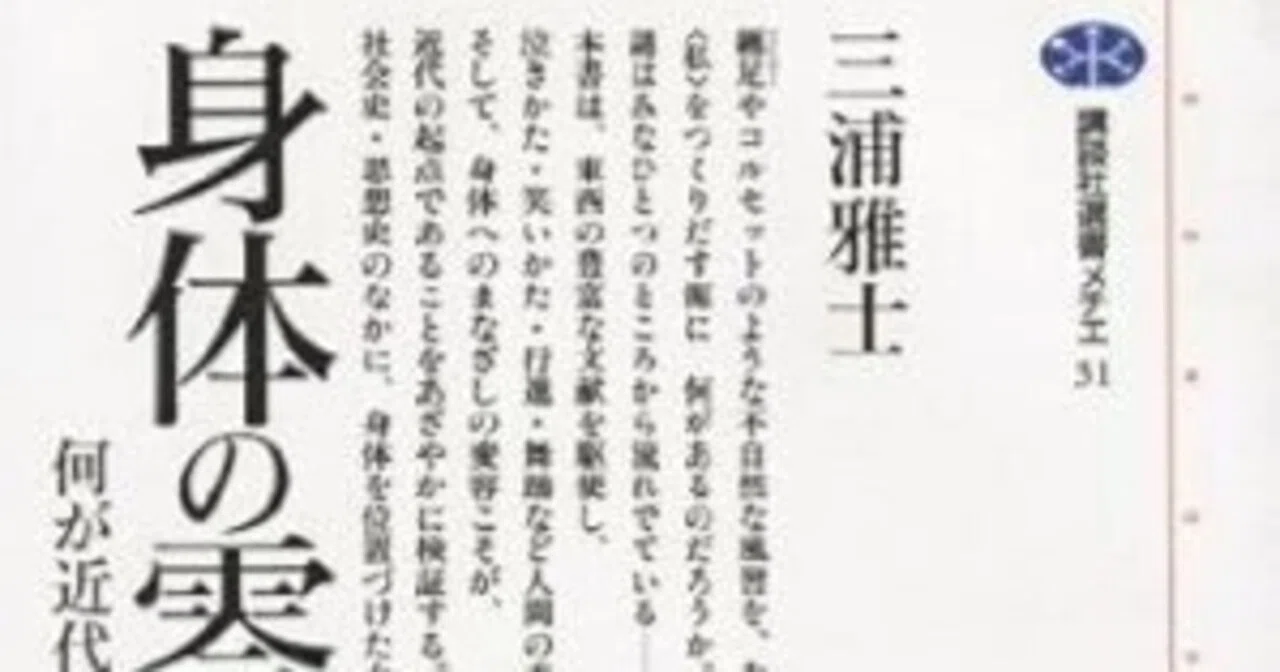 講談社選書メチエ 31
三浦雅士
纏足やコルセットのような不自然な風習を、
〈私〉をつくりだす源に 何があるのだろうか。
謎はみなひとつのところから流れでている──
本書は、東西の豊富な文献を駆使し、
泣きかた・笑いかた・行進・舞踊など人間の
そして、身体へのまなざしの変容こそが、
近代の起点であることをあざやかに検証する。
社会史・思想史のなかに、身体を位置づけた
身体の零
何が近代